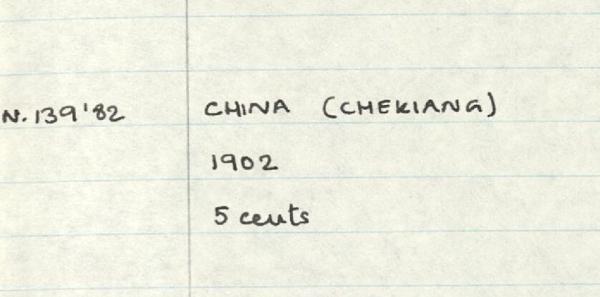 N. 139'82 CHINA (CHEKIANG)
1902
5 cents